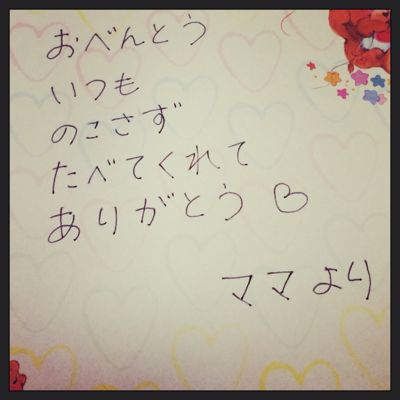 おべんとう
いつも
のこさず
たべてくれて
ありがとう♡
ママより